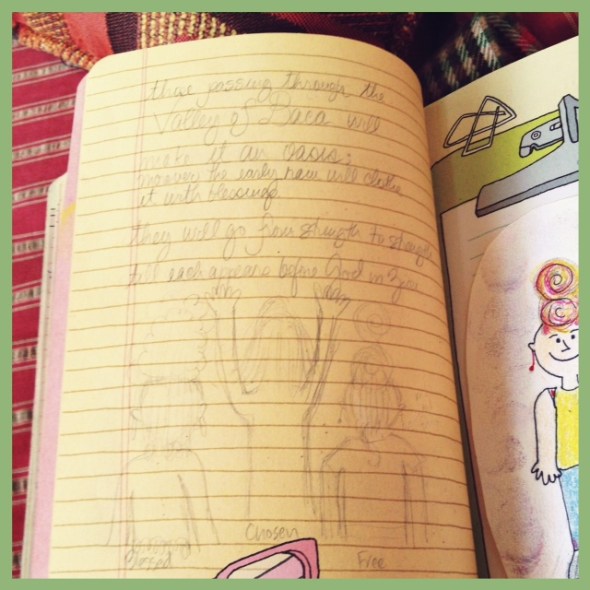 those passing through the
Valley of Baca will
make it an oasis;
moreover the early rain will clothe
it with blessings.
they will go from strength to strength
till each appears before God in Zion
Chosen
Blessed
Free